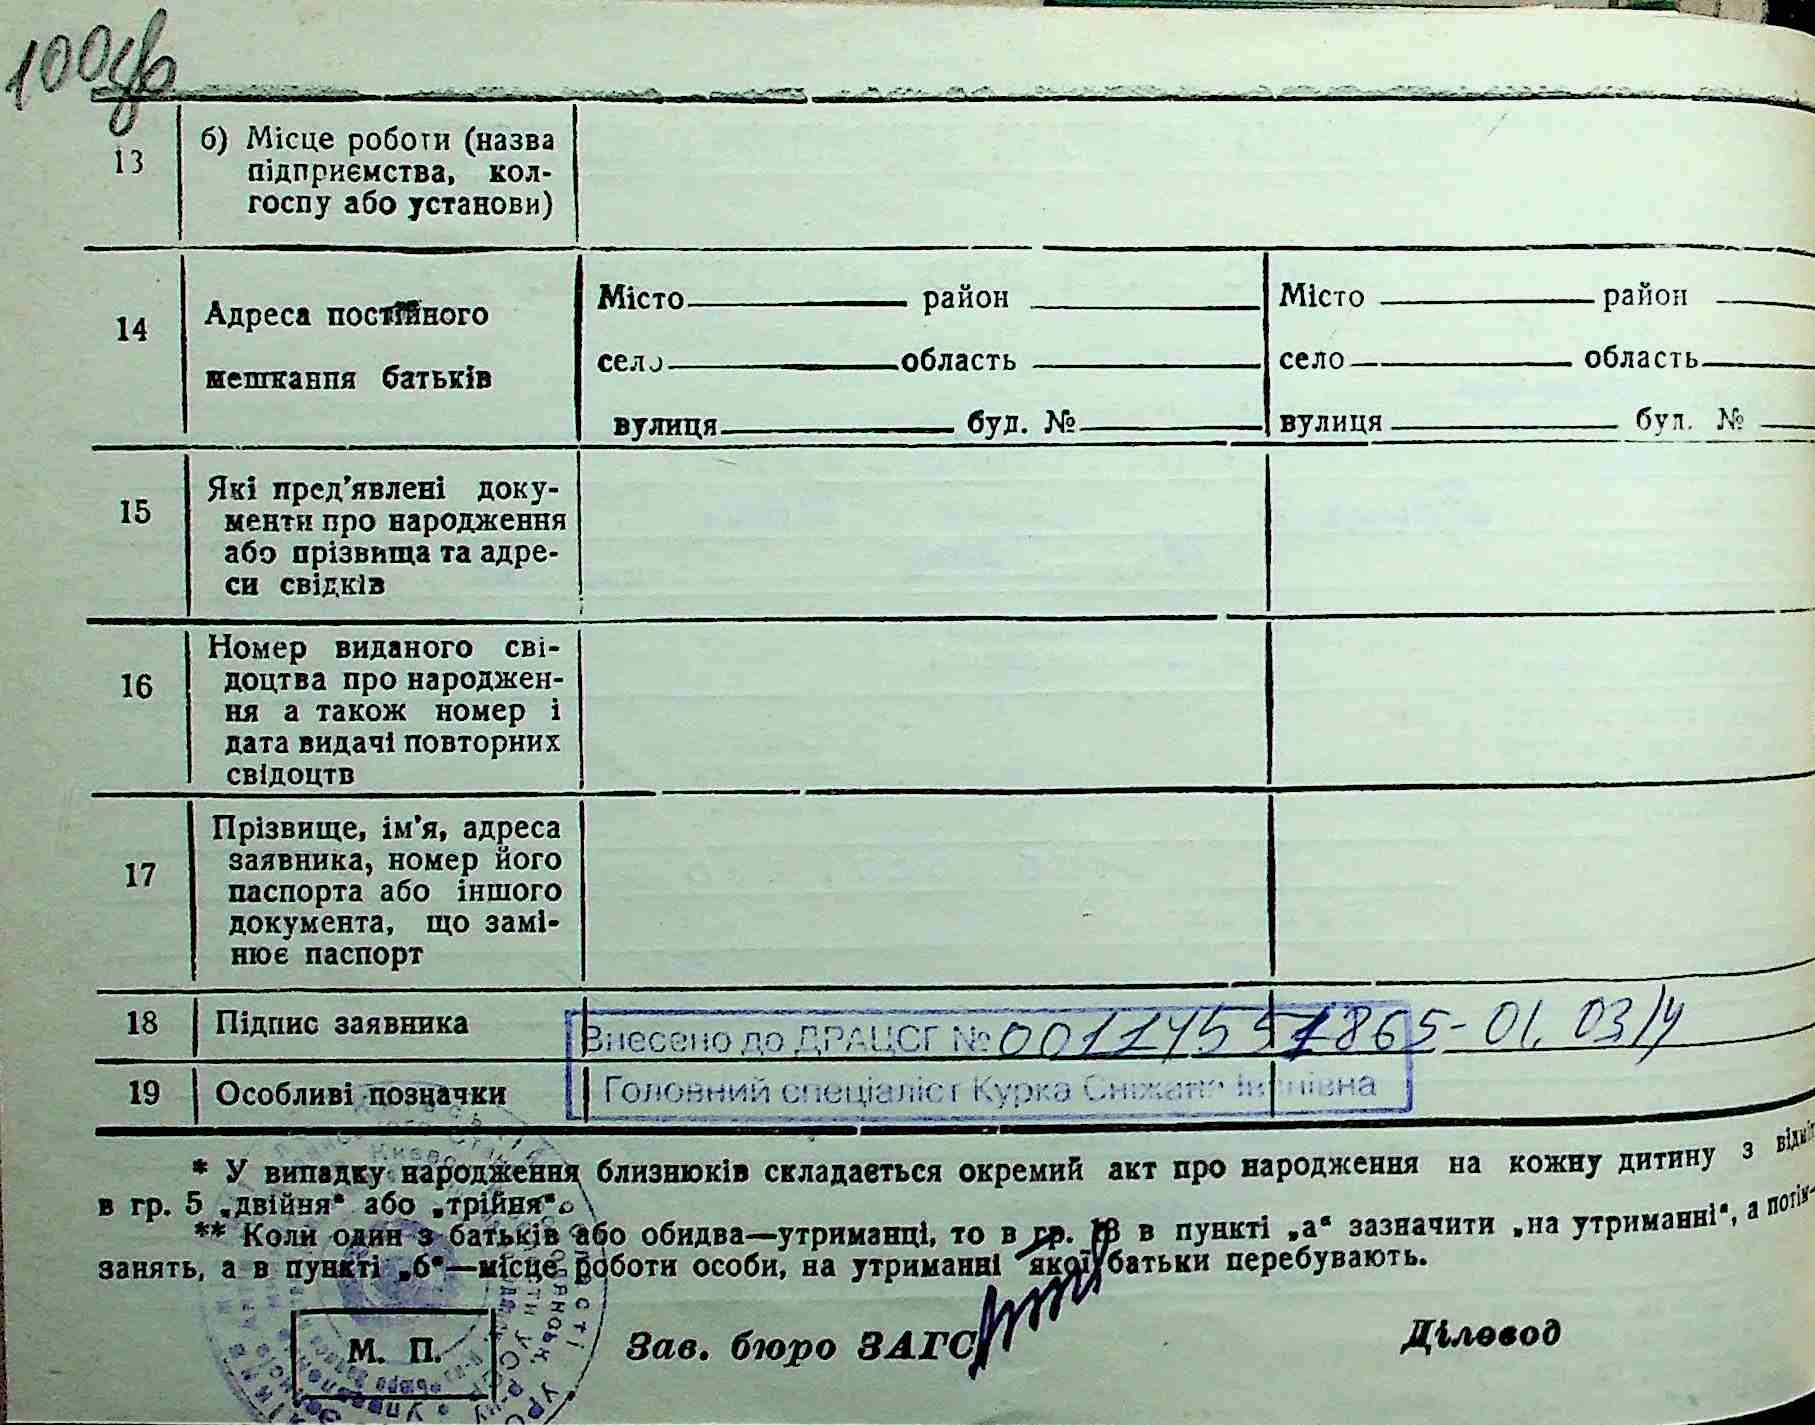 100
13
б) Місце роботи (назва
підприємства, кол-
госпу або установи)
14
Адреса постійного
мешкання батьків
Місто район
село область
вулиця буд. №
Місто район
село область
вулиця буд. №
15
Які пред'явлені доку-
менти про народження
або прізвища та адре-
си свідків
16
Номер виданого сві-
доцтва про народжен-
ня а також номер і
дата видачі повторних
свідоцтв
17
Прізвище, ім'я, адреса
заявника, номер його
паспорта або іншого
документа, що замі-
нює паспорт
18
Підпис заявника
Внесено до ДРАЦСГ №
19
Особливі позначки
Головний спеціаліст Курка Сніжана Іванівна
* У випадку народження близнюків складається окремий акт про народження на кожну дитину з
в гр. 5 „двійня“ або „трійня“.
** Коли один з батьків або обидва—утриманці, то в гр. 13 в пункті „а“ зазначити „на утриманні“, а потім-
занять, а в пункті „б“—місце роботи особи, на утриманні якої батьки перебувають.
М. П.
Зав. бюро ЗАГС
Діловод